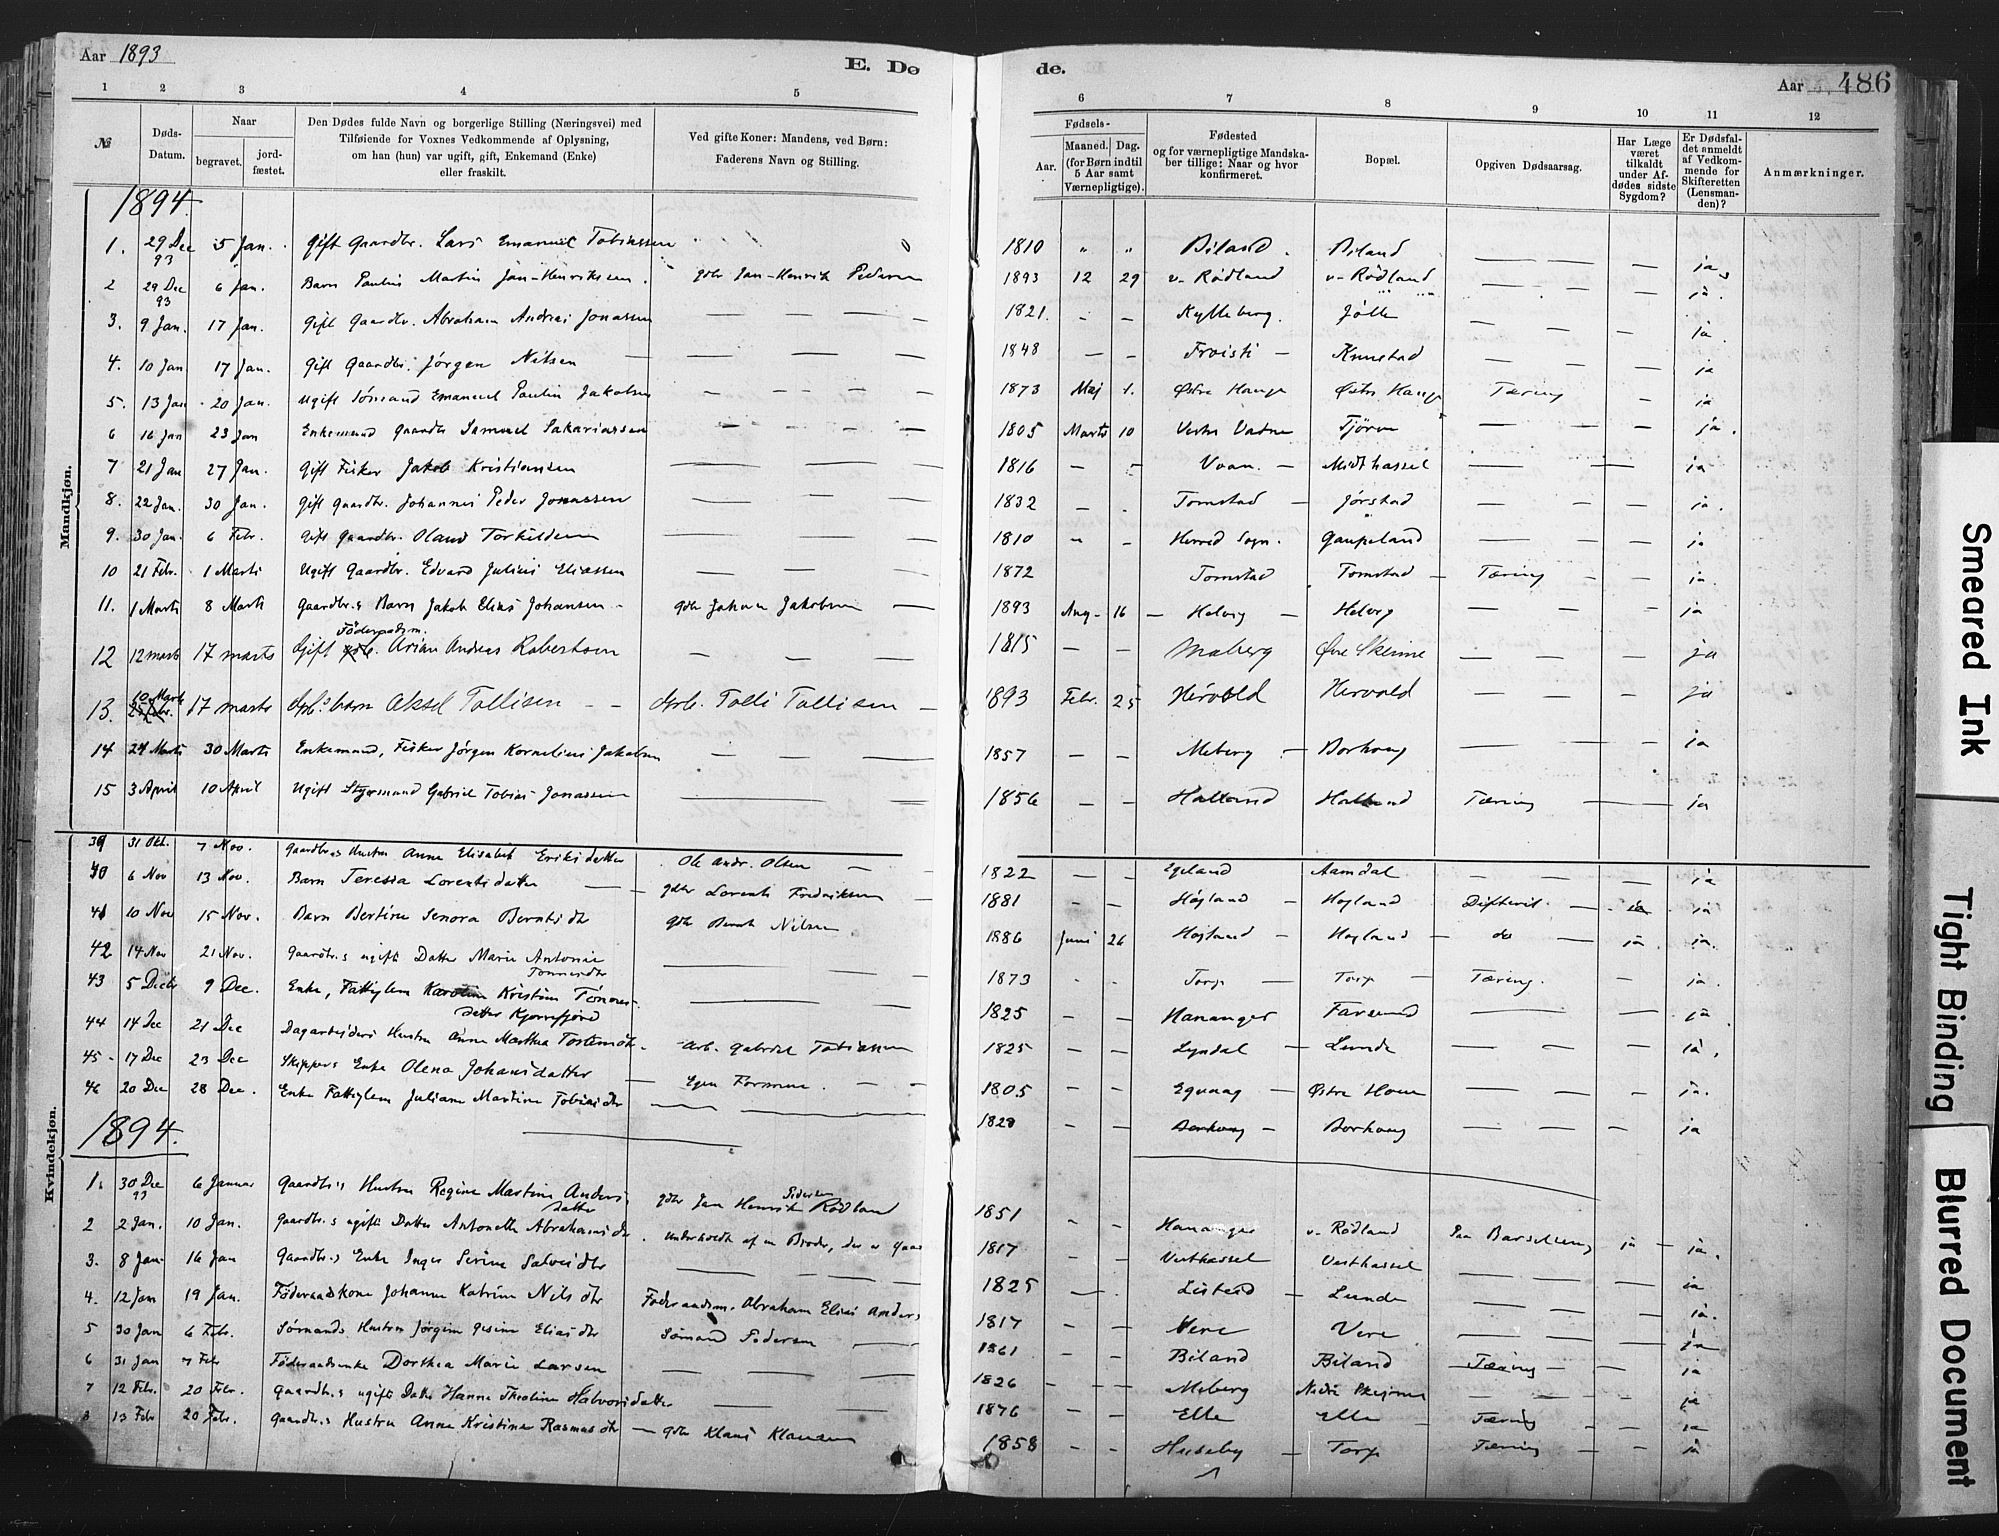 Aar 1893
E. Dø
de.
Aar 486
1 2 3 4 5 6 7 8 9 10 11 12
№
Døds-
Datum.
Naar
begravet.
jord-
fæstet.
Den Dødes fulde Navn og borgerlige Stilling (Næringsvei) med
Tilføiende for Voxnes Vedkommende af Oplysning,
om han (hun) var ugift, gift, Enkemand (Enke)
eller fraskilt.
Ved gifte Koner: Mandens, ved Børn:
Faderens Navn og Stilling.
Fødsels-
Aar.
Maaned. Dag.
(for Børn indtil
5 Aar samt
Værnepligtige).
Fødested
og for værnepligtige Mandska-
ber tillige: Naar og hvor
konfirmeret.
Bopæl.
Opgiven Dødsaarsag.
Har Læge
været
tilkaldt
under Af-
dødes sidste
Sygdom?
Er Dødsfal-
det anmeldt
af Vedkom-
mende for
Skifteretten
(Lensman-
den)?
Anmærkninger.
Mandkjøn.
1894.
1. 29 Dec 93 5 Jan. Gift Gaardbr. Lars Emanuel Tobiassen 1810 " " Biland. Biland — — — ja
2 29 Dec 93 6 Jan. Barn Paulus Martin Jan-Henriksen. gdbr Jan-Henrik Pedersen 1893 12 29 v. Rödland v. Rödland — — — ja.
3. 9 Jan. 17 Jan. Gift Gaardbr. Abraham Andreas Jonassen — — — 1821. - - Kylleberg. Jölle — — — ja.
4. 10 Jan 17 Jan. Gift Gaardbr. Jørgen Nilsen — — — 1848 — — Froisti — Knustad — — — ja
5. 13 Jan 20 Jan. Ugift Sömand Emanuel Paulin Jakobsen — — — 1873 Maj 1. Østre Hauge Østre Hauge Tæring — ja
6 16 Jan 23 Jan Enkemand Gaardbr Samuel Sakariassen — — — 1805 Marts 10 Vestre Vatne Tjörve — — — ja.
7 21 Jan 27 Jan. Gift Fisker Jakob Kristiansen — — — 1816 — - Vaan. — Midthassel — — — ja
8. 22 Jan. 30 Jan. Gift Gaardbr. Johannes Peder Jonassen — — — 1832 - - Tomstad — Jørstad — — — ja.
9. 30 Jan. 6 Febr. Gift Gaardbr. Olaus Torkildsen — — — 1810 " - Herred Sogn. Gaupeland — — — ja
10 21 Febr. 1 Marts Ugift Gaardbr. Edvard Julius Eliassen — — — 1872 Tomstad Tomstad — Tæring — — ja.
11. 1 Marts 8 Marts Gaardbr.s Barn Jakob Elias Johansen - gdbr Johan Jakobsen — 1893 Aug- 16 — Helvig — Helvig — — — ja
Föderaadsm.
12 12 marts 17 marts Gift Arian Andreas Robertsen — — — 1815 — — Meberg Øvre Skeime — — — ja
13. 10 Marts 17 marts Arb.s barn Aksel Tollisen - - Arb. Tolli Tollisen — 1893 Febr. 25 Hervold Hervold — — — ja
14 24 Marts 30 Marts Enkemand, Fisker Jørgen Kornelius Jakobsen — — — 1857 — — Meberg — Borhaug — — — ja
15 3 April 10 April Ugift Styrmand Gabriel Tobias Jonassen — — — 1856 — — Halland Halland Tæring — — ja
Kvindekjøn.
39 31 Okt. 7 Nov. Gaardbr.s Hustru Anne Elisabet Eriksdatter Ole Andr. Olsen — 1822 — — Egeland Aamdal - - — ja
40 6 Nov 13 Nov. Barn Teresia Lorentsdatter — — gdbr Lorents Fredriksen 1881 - - Høyland — Høyland — Difterit — ja ja
41 10 Nov 15 Nov. Barn Bertine Senora Berntsdtr gdbr Bernt Nilsen 1886 Juni 26 Høyland — Høyland — do — ja. ja.
42 14 Nov 21 Nov. Gaardbr.s ugifte Datter Marie Antonie
Tønnesdtr 1873 - - Torp — Torp — Tæring. - ja.
43 5 Decbr 9 Dec. Enke, Fattiglem Karoline Kristine Tønnes-
datter Kjørrefjord 1825 - - Hananger Farsund — — — ja
44 14 Dec 21 Dec Dagarbejders Hustru Anne Martha — Arb. Gabriel Tobiassen 1825 — — Lyndal — Lunde — — — ja.
45 17 Dec 23 Dec Skippers Enke Olena Johansdatter — Egen Formue. — — 1805 - - Østre — — - ja.
46 20 Dec 28 Dec. Enke Fattiglem Juliane Martine Tobiasdtr — — — 1828 - - Borhaug — Borhaug — — — ja
1894.
1. 30 Dec 93 6 Januar Gaardbr.s Hustru Regine Martine Anders-
datter gdbr Jan Henrik Pedersen Rødland 1851 - - Hananger v. Rödland Paa Barselseng ja — ja.
2 2 Jan. 10 Jan. Gaardbr.s ugifte Datter Antonette Abrahamsdtr. Underholdt af en Broder, der er Gaardbr 1817 - - Vesthassel Vesthassel — — — ja
3. 8 Jan. 16 Jan Gaardbr.s Enke Inger Serine Salvesdtr — — — 1825 — Listeid — Lunde — — — ja.
4. 12 Jan 19 Jan. Föderaadskone Johanne Katrine Nilsdtr Föderaadsm. Abraham Elias Anders 1817 - - Vere Vere — — — ja
5 30 Jan 6 Febr. Sømands Hustru Jørgine Gesine Eliasdtr Sømand Pedersen — 1861 - - Biland Biland — Tæring — — ja
6 31 Jan 7 Febr Föderaadsenke Dorthea Marie Larsen — — — 1826 - - Meberg Nedre Skejme — — — ja
7 12 Febr. 20 Febr. Gaardbr.s ugifte Datter Hanne Theoline Halvorsdatter — — 1876 - - Elle — Elle — Tæring — — ja
8 13 Febr 20 Febr. Gaardbr.s Hustru Anne Kristine Rasmusdtr — gdbr Klaus Klausen 1858 - - Huseby — Torp Tæring — — ja
Smeared Ink
Tight Binding
Blurred Document